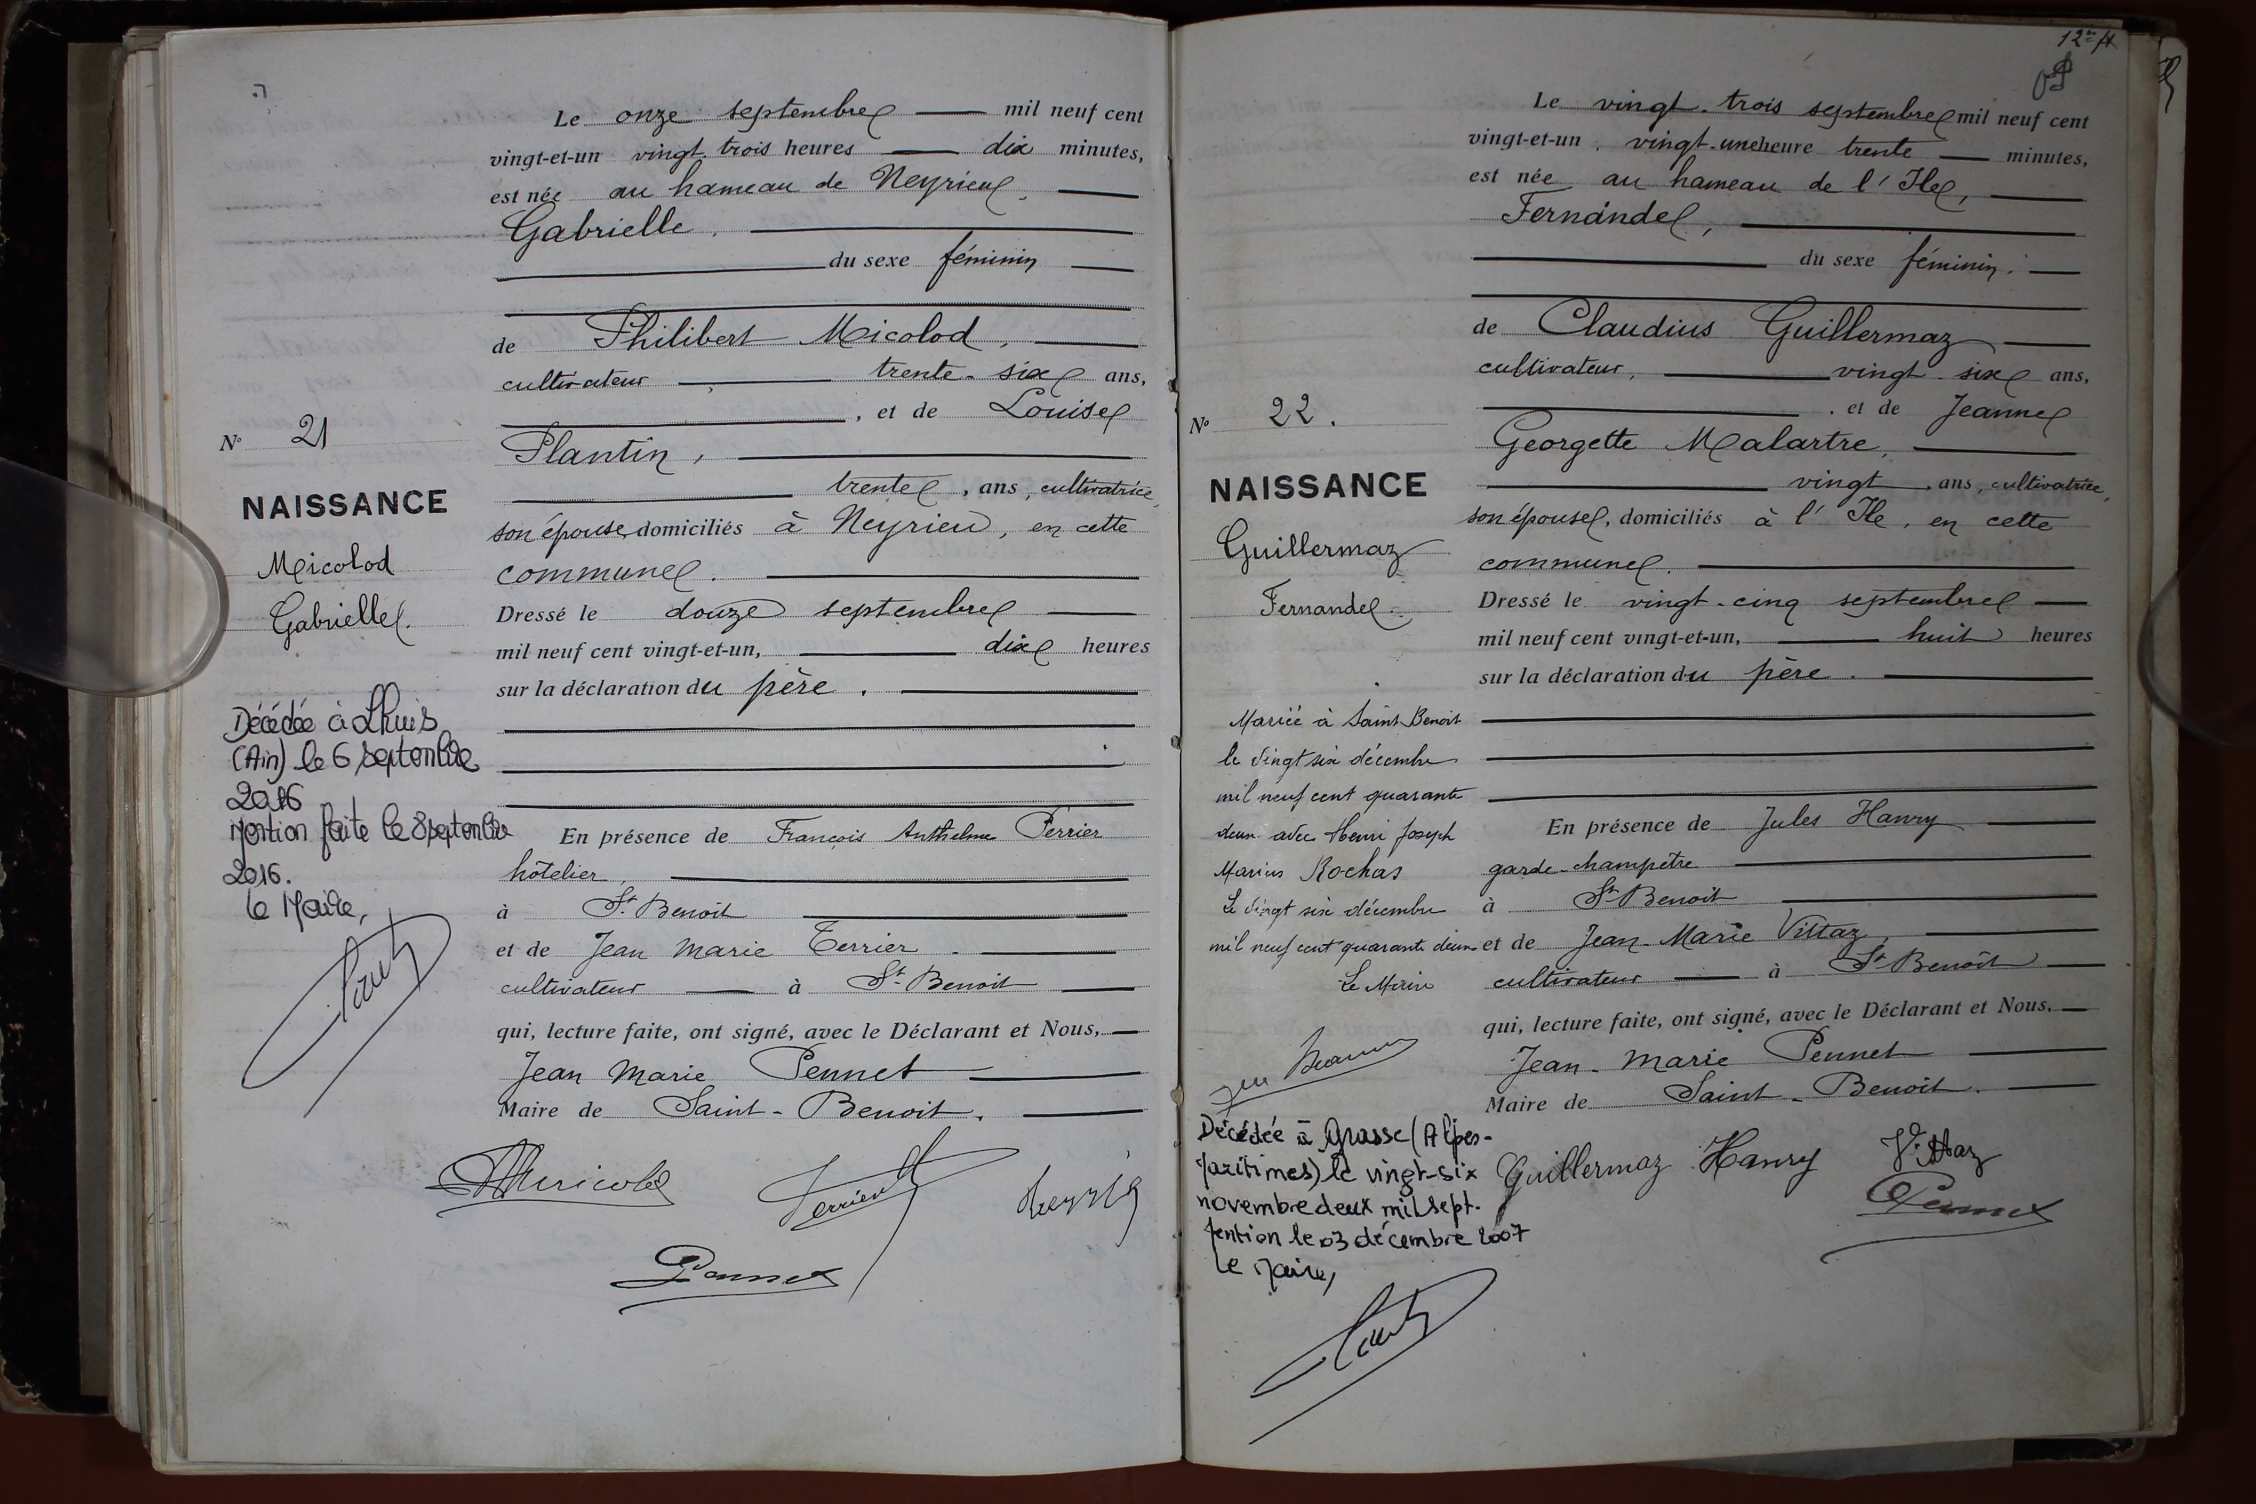 Le onze septembre mil neuf cent
vingt-et-un vingt-trois heures dix minutes,
est née au hameau de Neyrieu,
Gabrielle,
du sexe féminin
de Philibert Micolod,
cultivateur, trente-six ans,
, et de Louise
Plantin,
trente, ans, cultivatrice,
son épouse, domiciliés à Neyrieu, en cette
commune.
Dressé le douze septembre
mil neuf cent vingt-et-un, dix heures
sur la déclaration du père.
En présence de François Anthelme Perrier
hôtelier,
à St Benoit
et de Jean Marie Terrier
cultivateur à St Benoit
qui, lecture faite, ont signé, avec le Déclarant et Nous,
Jean Marie Pennet
Maire de Saint-Benoit.
Pennet
No 21
NAISSANCE
Micolod
Gabrielle.
Décédée à Lhuis
(Ain) le 6 septembre
2016
Mention faite le 8 septembre
2016.
Le Maire,
Le vingt-trois septembre mil neuf cent
vingt-et-un, vingt-une heure trente minutes,
est née au hameau de l'Ile,
Fernande,
du sexe féminin,
de Claudius Guillermaz
cultivateur, vingt-six ans,
, et de Jeanne
Georgette Malartre,
vingt, ans, cultivatrice,
son épouse, domiciliés à l'Ile, en cette
commune.
Dressé le vingt-cinq septembre
mil neuf cent vingt-et-un, huit heures
sur la déclaration du père.
En présence de Jules Hanry
garde-champêtre
à St Benoit
et de Jean-Marie Vittaz,
cultivateur à St Benoit
qui, lecture faite, ont signé, avec le Déclarant et Nous,
Jean-Marie Pennet
Maire de Saint-Benoit.
Guillermaz Hanry Vittaz
Pennet
No 22.
NAISSANCE
Guillermaz
Fernande.
Mariée à Saint Benoit
le vingt six décembre
mil neuf cent quarante
deux avec Henri Joseph
Marius Rochas
Le vingt six décembre
mil neuf cent quarante deux
Le Maire
Décédée à Grasse (Alpes-
Maritimes) le vingt-six
novembre deux mil sept.
Mention le 03 décembre 2007
Le Maire,